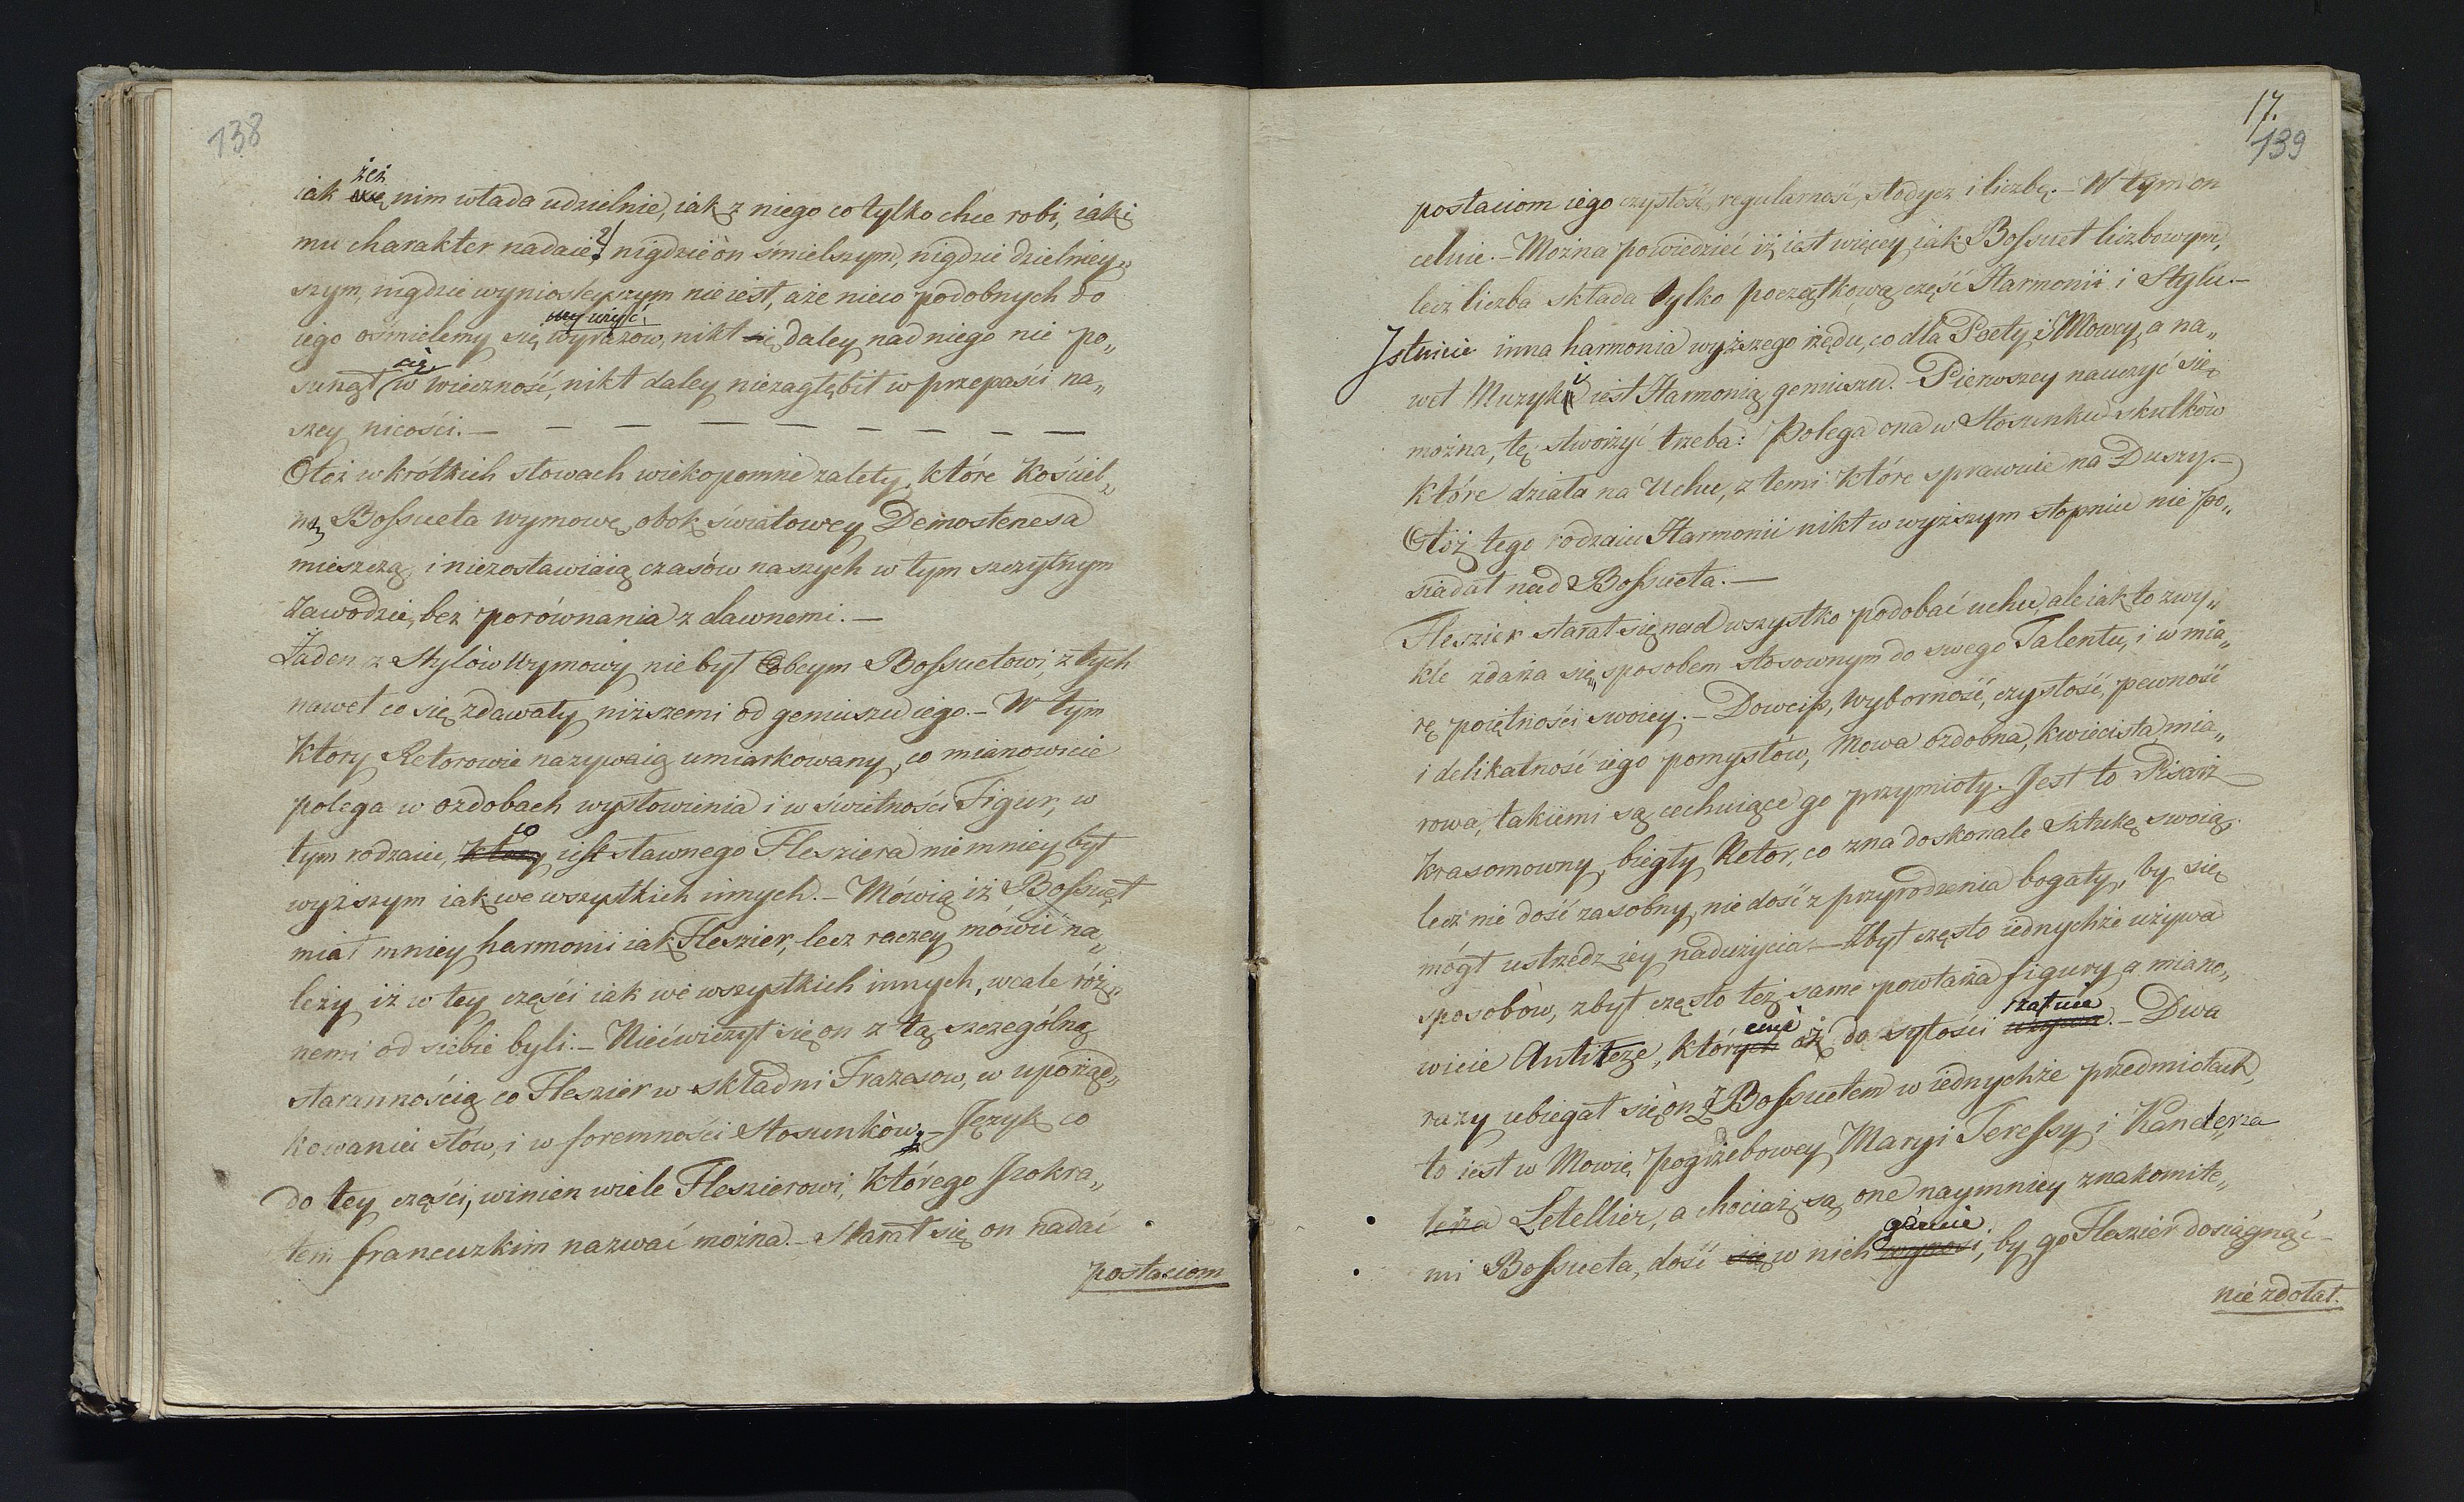 138
iak żeż nim włada udzielnie, iak z niego co tylko chce robi, iaki
mu charakter nadaie? nigdzie on śmielszym, nigdzie dzielniey„
szym, nigdzie wyniosleyszym nie iest, a że nieco podobnych do
iego ośmielemy się użyć wyrazow, nikt się daley nad niego nie po„
sunął w wieczność, nikt daley niezagłębił w przepaści na„
szey nicości. — — — — — — — — — —
Otoż w krótkich słowach wiekopomne zalety, które Kościel„
ną Bossueta wymowę, obok światowey Demostenesa
mieszczą, i niezostawiaią czasów naszych w tym szczytnym
zawodzie, bez porównania z dawnemi. —
Żaden z Stylów Wymowy nie był Obcym Bossuetowi, z tych
nawet co się zdawały niższemi od geniuszu iego. — W tym
który Retorowie nazywaią umiarkowany, co mianowicie
polega w ozdobach wysłowienia i w świetności Figur, w
tym rodzaiu, który co iest sławnego Flesziera niemniey był
wyższym iak we wszystkich innych. — Mówią iż Bossuet
miał mniey harmonii iak Fleszier, lecz raczey mówić na„
leży iż w tey części iak we wszystkich innych, wcale róż„
nemi od siebie byli. — Niećwiczył się on z tą szczególną
starannością co Fleszier w składni Frazesow, w uporząd„
kowaniu słów, i w foremności Stosunków. — Język co
do tey części, winien wiele Fleszierowi, którego Izokra„
tem francuzkim nazwać można. — Starał się on nadać
postaciom
17.
139
postaciom iego czystość, regularność, słodycz i liczbę. — W tym on
celuie. — Można powiedzieć iż iest więcey iak Bossuet liczbowym,
lecz liczba składa tylko początkową część Harmonii i Stylu. —
Istnieie inna harmonia wyższego rzędu, co dla Poety i Mowcy, a na„
wet Muzyki iest Harmonią geniuszu. — Pierwszey nauczyć się
można, tę stworzyć trzeba: Polega ona w Stosunku skutków
które działa na Uchu, z temi które sprawuie na Duszy. —
Otóż tego rodzaiu Harmonii nikt w wyższym stopniu nie po„
siadał nad Bossueta. —
Fleszier starał się nad wszystko podobać uchu, ale iak to zwy„
kle zdarza się, sposobem stosownym do swego Talentu, i w mia„
rę poiętności swoiey. — Dowcip, wyborność, czystość, pewność
i delikatność iego pomysłów, Mowa ozdobna, kwiecista, mia„
rowa, takiemi są cechuiące go przymioty. Jest to Pisarz
krasomowny, biegły Retor, co zna doskonale Sztukę swoią,
lecz nie dość zasobny, nie dość z przyrodzenia bogaty, by się
mógł ustrzedz iey nadużycia. — Zbyt często iednychże używa
sposobów, zbyt często też same powtarza figury, a miano„
wicie Antiteze, których aż do sytości używa szafuie. — Dwa
razy ubiegał się on z Bossuetem w iednychże przedmiotach,
to iest w Mowie pogrzebowey Maryi Teressy, i Kanclerza
lerza Letellier, a chociaż są one naymniey znakomite„
mi Bossueta, dość się w nich góruie, by go Fleszier dosiągnąć
nie zdołał.